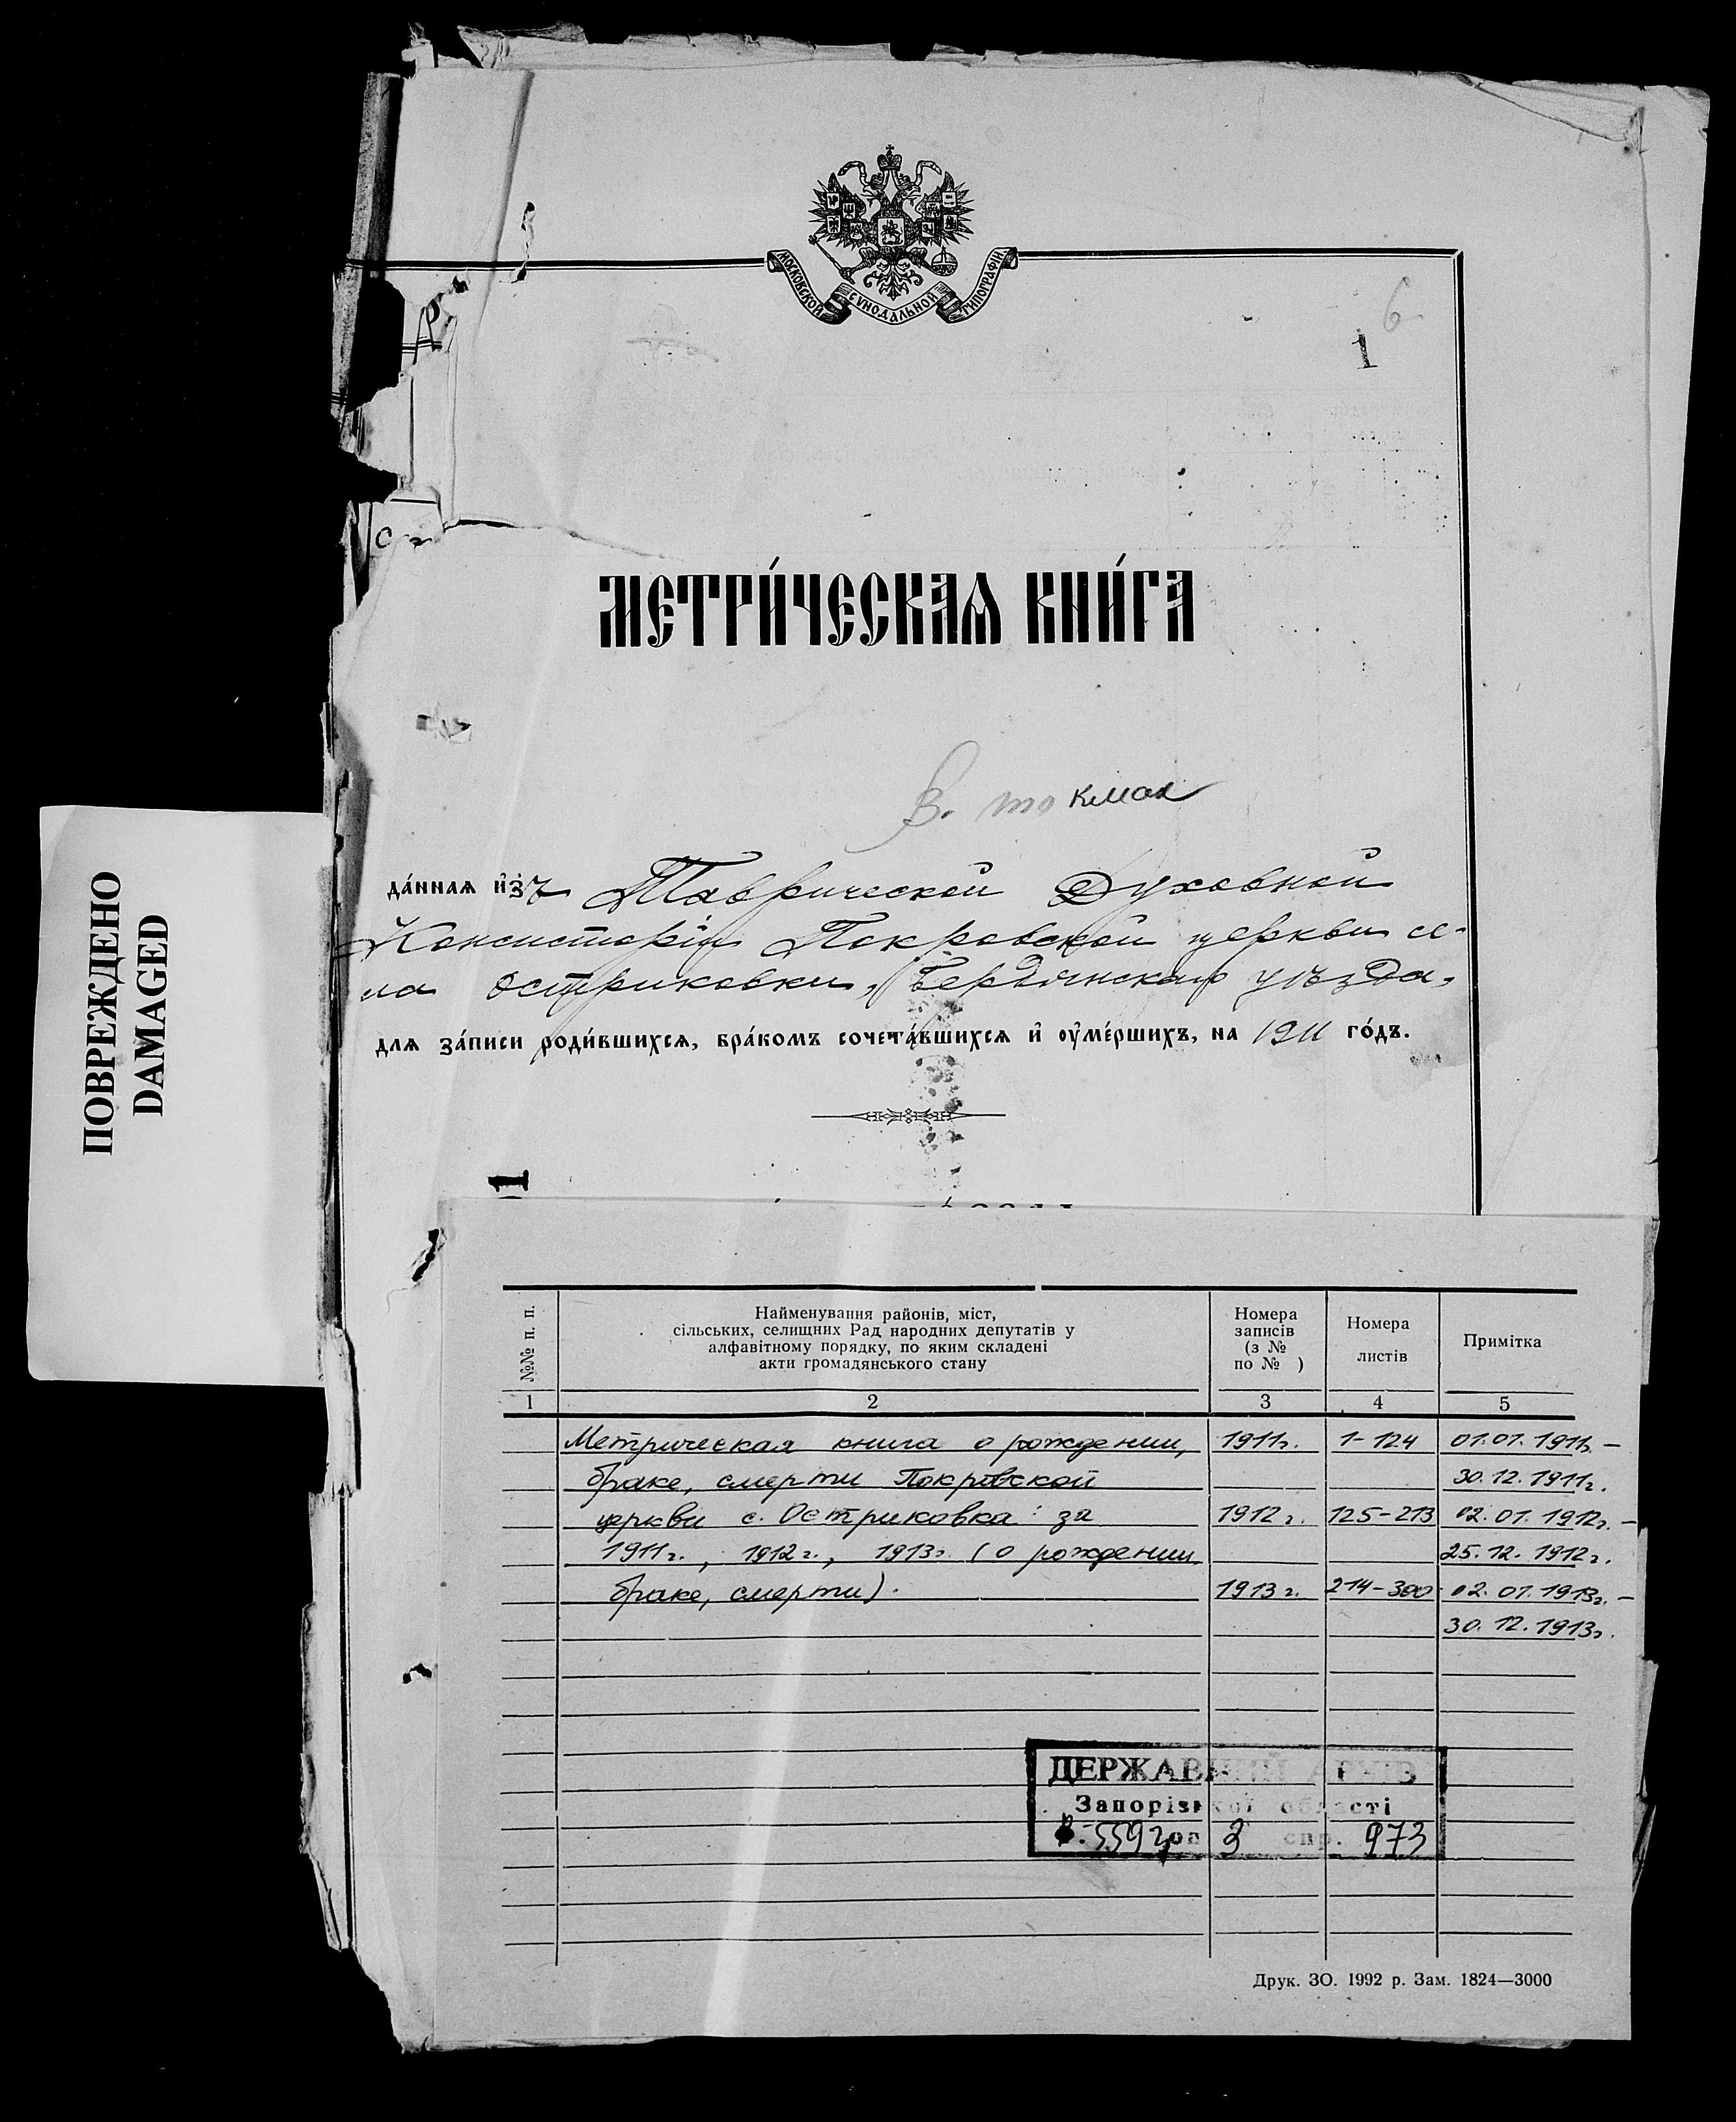 МОСКОВСКОЙ СѴНОДАЛЬНОЙ ТИПОГРАФІИ
6
1
МЕТРИ́ЧЕСКАѦ КНИ́ГА
В. токмак
да́ннаѧ и҆зъ Таврической Духовной
Консисторіи Покровской церкви се-
ла Остриковки, Бердянскаго уѣзда,
для за́писи роди́вшихсѧ, бра́комъ сочета́вшихсѧ и҆ оу҆ме́ршихъ, на 1911 го́дъ.
ПОВРЕЖДЕНО
DAMAGED
1
№№ п. п.
Найменування районів, міст,
сільських, селищних Рад народних депутатів у
алфавітному порядку, по яким складені
акти громадянського стану
Номера
записів
(з №
по № )
Номера
листів
Примітка
1 2 3 4 5
Метрическая книга о рождении, 1911г. 1-124 01.01.1911г. –
браке, смерти Покровской 30.12.1911г.
церкви с. Остриковка за 1912г. 125-213 02.01.1912г. –
1911г., 1912г., 1913г (о рождении 25.12.1912г.
браке, смерти). 1913г. 214-300 02.01.1913г. –
30.12.1913г.
ДЕРЖАВНИЙ АРХІВ
Запорізької області
Р.-5593 оп 3 спр. 973
Друк. ЗО. 1992 р. Зам. 1824—3000